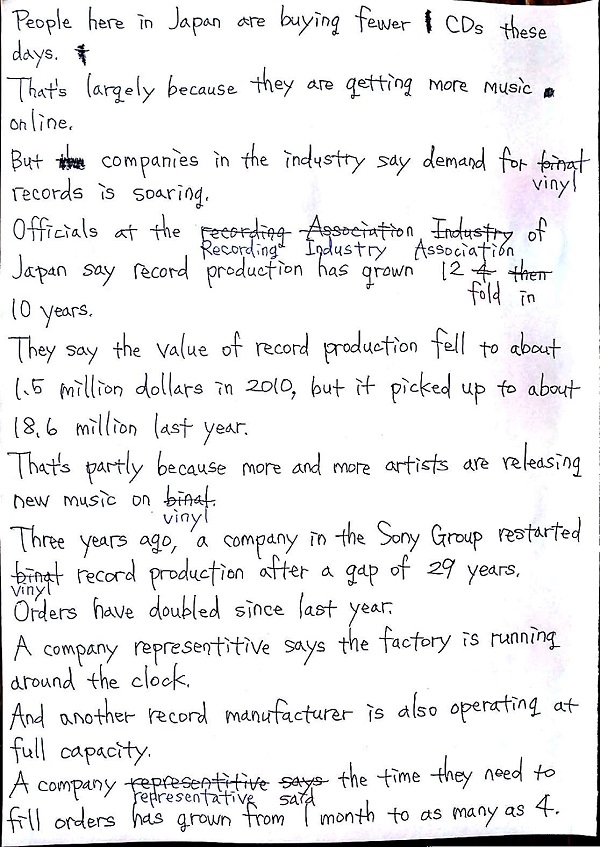 People here in Japan are buying fewer CDs these
days.
That's largely because they are getting more music
online.
But companies in the industry say demand for binat
vinyl
records is soaring.
Officials at the recording Association Industry of
Recording Industry Association
Japan say record production has grown 12 4 then
fold in
10 years.
They say the value of record production fell to about
1.5 million dollars in 2010, but it picked up to about
18.6 million last year.
That's partly because more and more artists are releasing
new music on binat.
vinyl
Three years ago, a company in the Sony Group restarted
binat record production after a gap of 29 years.
vinyl
Orders have doubled since last year.
A company representitive says the factory is running
around the clock.
And another record manufacturer is also operating at
full capacity.
A company representitive says the time they need to
representative said
fill orders has grown from 1 month to as many as 4.